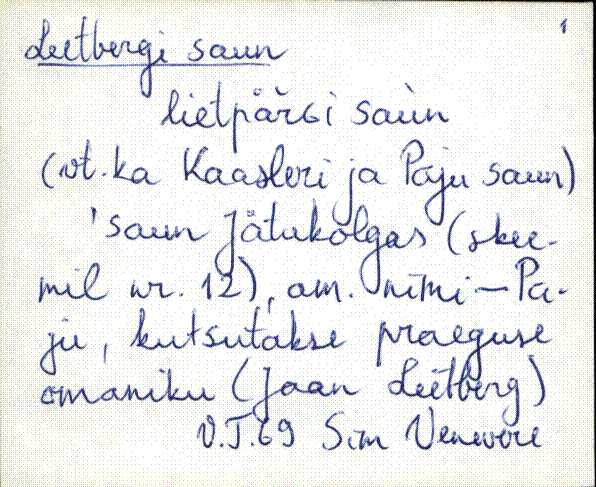 1
Lietbergi saun
lietpärGi saùn
(vt. ka Kaasleri ja Paju saun)
'saun Jätukolgas (skee-
mil nr. 12), am. nimi – Pa-
ju, kutsutakse praeguse
omaniku (Jaan Lietberg)
V.J.69 Sim Venevere